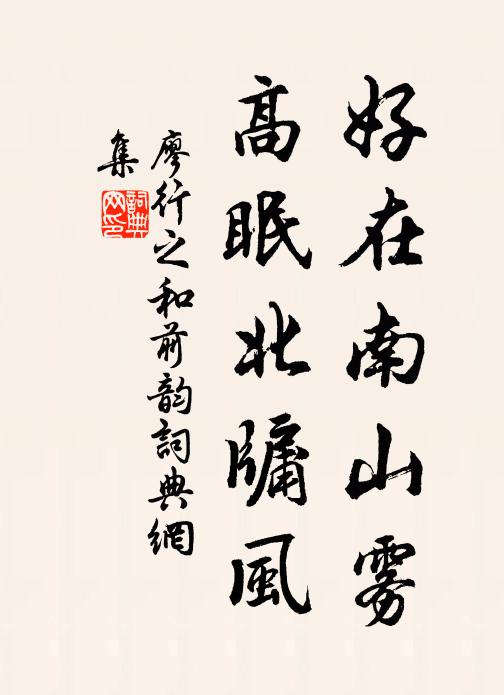 好在南山雾
高眠北牖風
廖行之和前韵詞典網
集
詞典网印